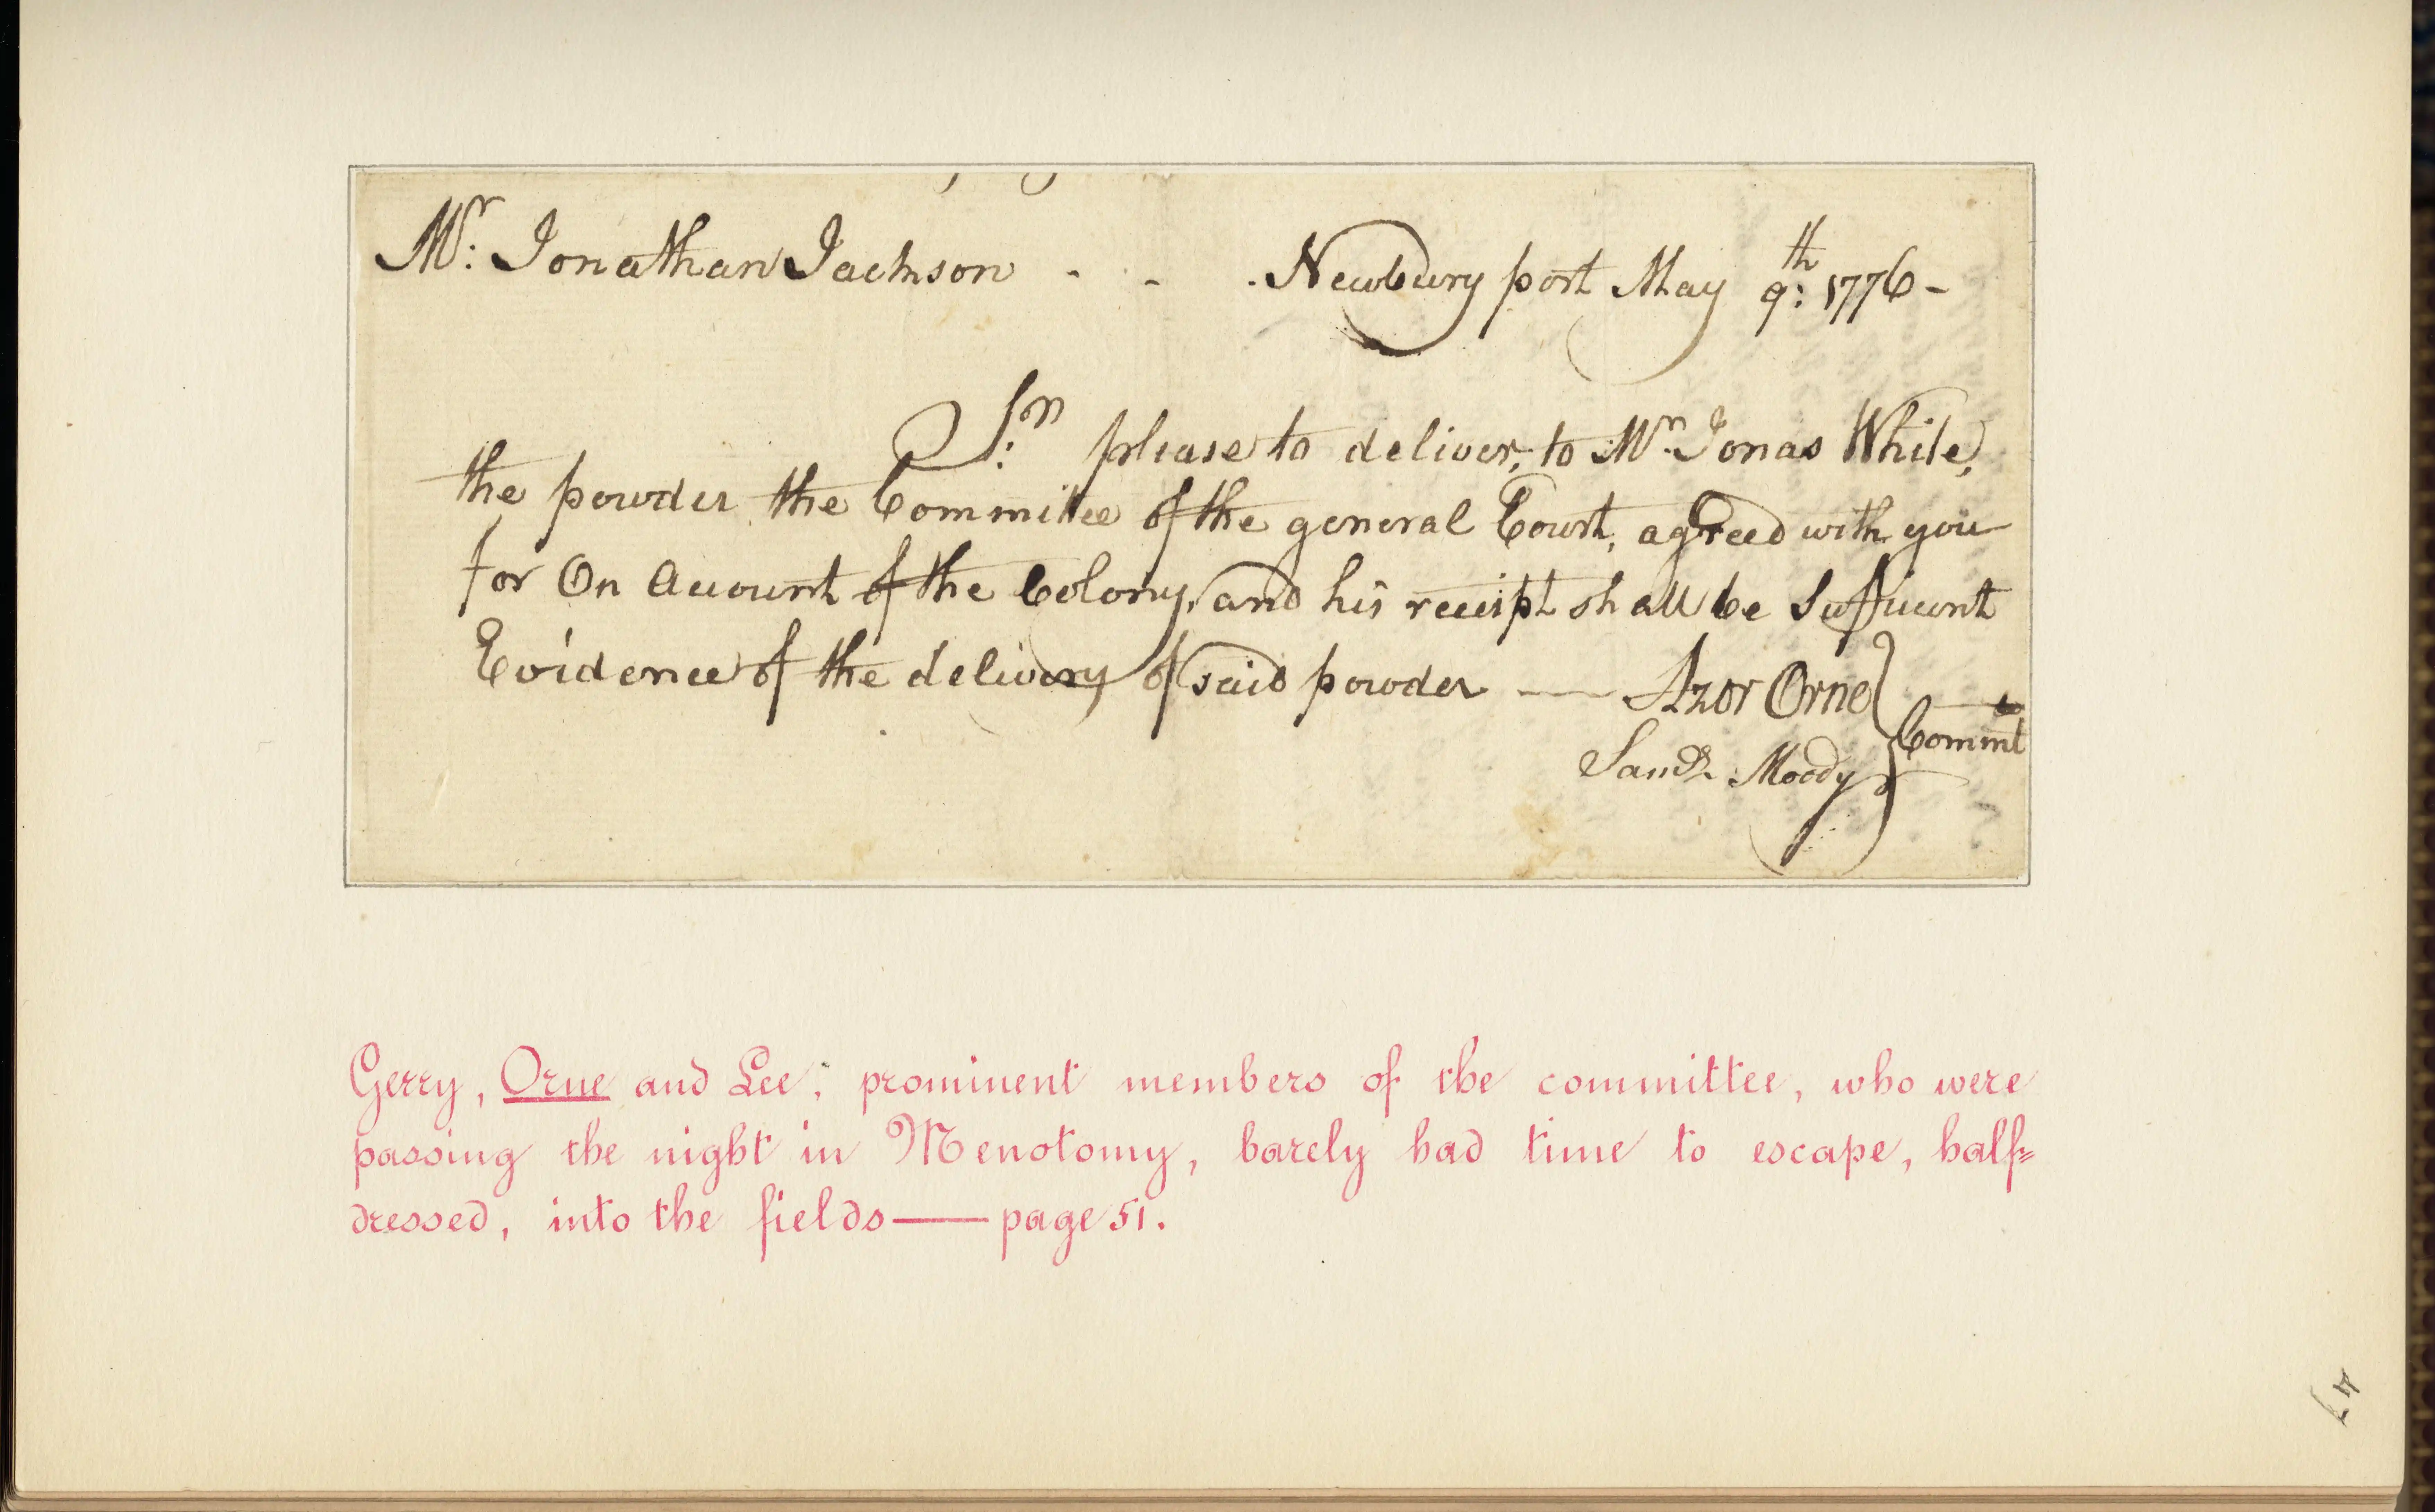 Mr: Jonathan Jackson - - - Newbury port May 9:th 1776-
Sr: please to deliver, to Mr. Jonas White,
the powder the Committee of the general Court, agreed with you
for On Account of the Colony, and his receipt shall be Sufficient
Evidence of the delivery of said powder — Azor Orne
Saml. Moody
Commte
Gerry, Orne and Lee, prominent members of the committee, who were
passing the night in Menotomy, barely had time to escape, half=
dressed, into the fields — page 51.